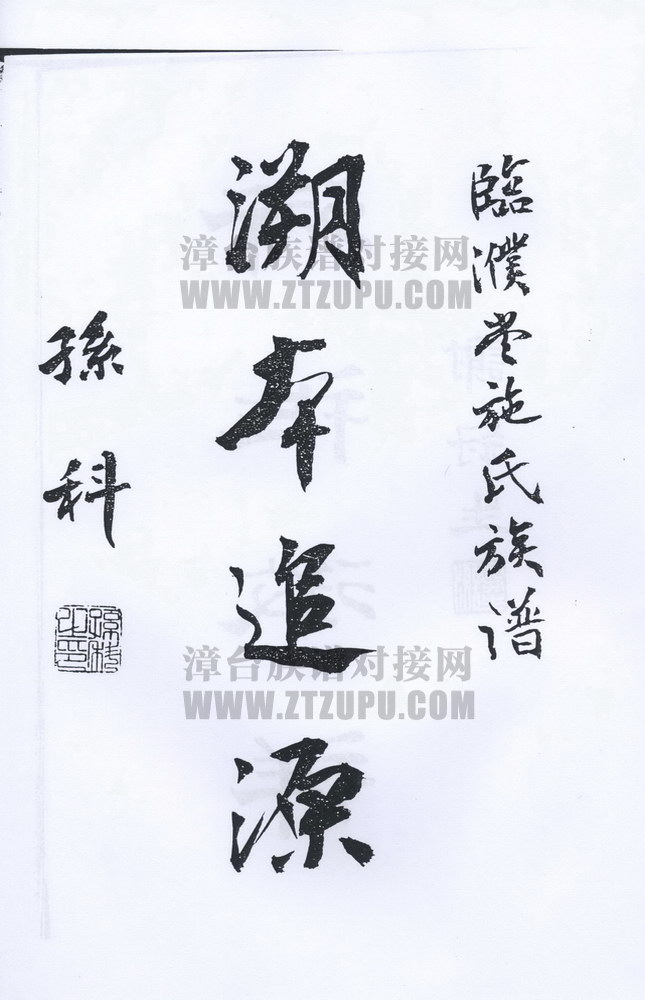 臨濮堂施氏族譜
溯本追源
孫科
孫科之印
漳台族谱对接网
WWW.ZTZUPU.COM
漳台族谱对接网
WWW.ZTZUPU.COM